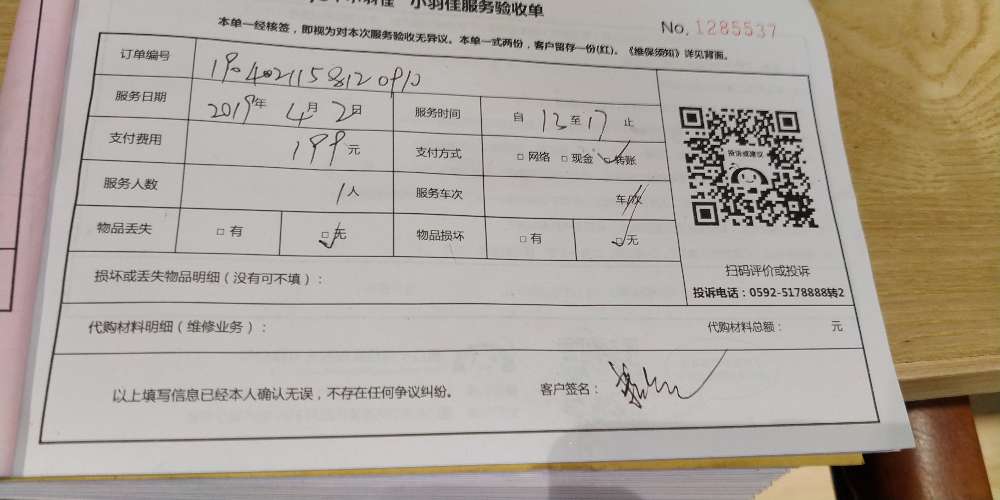 小羽佳服务验收单
No. 1285537
本单一经核签，即视为对本次服务验收无异议。本单一式两份，客户留存一份(红)。《维保须知》详见背面。
订单编号
服务日期 2019年 4月 2日 服务时间 自 13 至 17 止
支付费用 199元 支付方式 □网络 □现金 □转账
服务人数 1人 服务车次 车/次
物品丢失 □有 □无 物品损坏 □有 □无
投诉或建议
扫码评价或投诉
投诉电话：0592-5178888转2
损坏或丢失物品明细（没有可不填）：
代购材料明细（维修业务）： 代购材料总额： 元
以上填写信息已经本人确认无误，不存在任何争议纠纷。 客户签名：